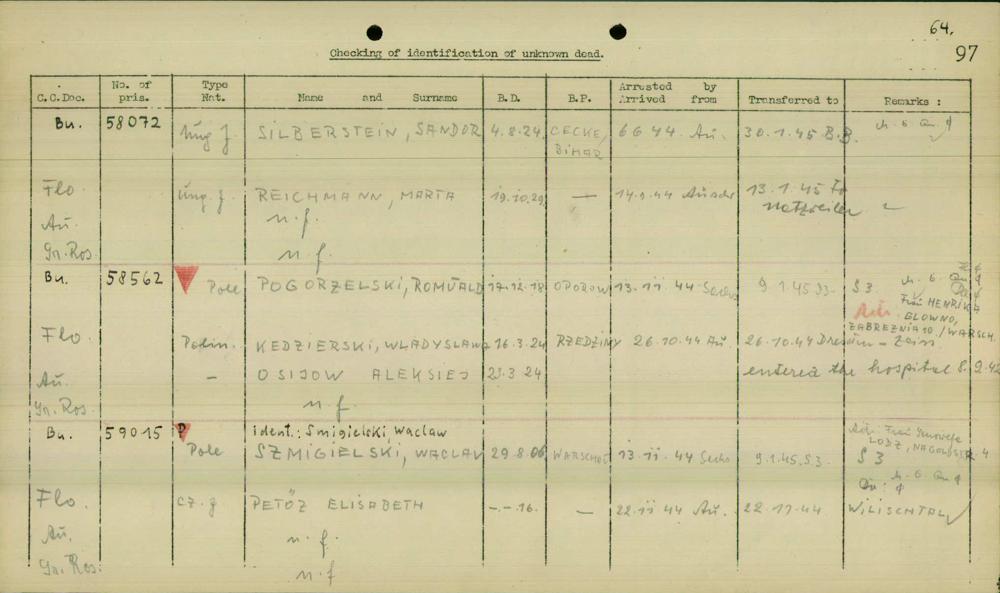 64.
97
Checking of identification of unknown dead.
C.C.Doc. No. of pris. Type Nat. Name and Surname B.D. B.P. Arrested Arrived by from Transferred to Remarks :
Bu. 58072 Ung. J. SILBERSTEIN, SANDOR 4.8.24 CECKE, BIHAR 6 6 44 Au. 30.1.45 B.B.
Flo. Ung. J. REICHMANN, MARTA 19.10.29 — 14.9.44 13.1.45 to Natzweiler
Au. n. f.
Gr. Ros. n. f.
Bu. 58562 Pole POGORZELSKI, ROMUALD 17.12.18 OPOROW 13.11 44 Sachs 9 1.45 S3. S 3.
Frau HENRIKA
GLOWNO,
ZABREZNIA 10 / WARSCH.
Flo. Polin. KEDZIERSKI, WLADYSLAWA 16.3.24 RZEDZINY 26.10.44 Au. 26.10.44 Dresden - Zeiss
Au. — OSIJOW ALEKSIEJ 23.3 24 entered the hospital 8.2.42
Gr. Ros. n. f.
Bu. 59015 P ident.: Smigielski, Waclaw
Pole SZMIGIELSKI, WACLAW 29 8 06 WARSCHAU 13 11 44 Sachs 9.1.45. S3. S 3
Frau
LODZ,
Flo. CZ. J PETÖZ ELISABETH -.-.16. — 22.11 44 Au. 22.11.44 WILISCHTAL
Au. n. f.
Gr. Ros. n. f